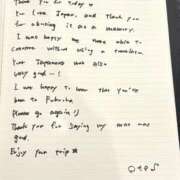 Thank you for today☺
You love Japan, and thank you
for choosing it as a memory.
I was happy we were able to
converse without using a translator.
Your Japanese was also
very good~!
I was happy to hear that you've
been to Fukuoka.
Please go again :)
Thank you for saying my was
good.
Enjoy your trip